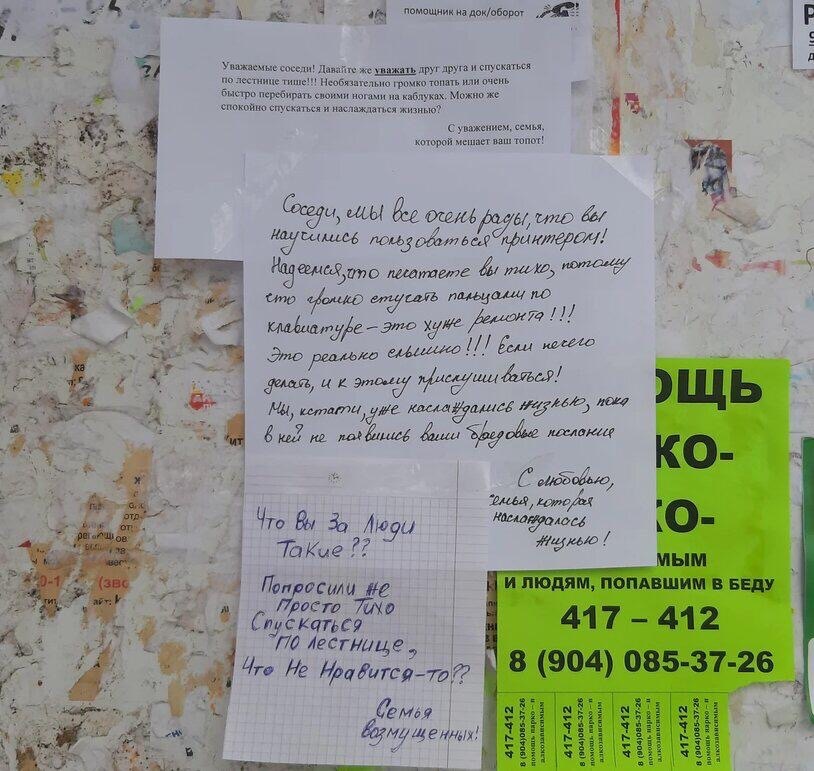 помощник на док/оборот
Уважаемые соседи! Давайте же уважать друг друга и спускаться
по лестнице тише!!! Необязательно громко топать или очень
быстро перебирать своими ногами на каблуках. Можно же
спокойно спускаться и наслаждаться жизнью?
С уважением, семья,
которой мешает ваш топот!
Соседи, мы все очень рады, что вы
научились пользоваться принтером!
Надеемся, что печатаете вы тихо, потому
что громко стучать пальцами по
клавиатуре – это хуже ремонта!!!
Это реально слышно!!! Если нечего
делать, и к этому прислушиваться!
Мы, кстати, уже наслаждались жизнью, пока
в ней не появились ваши бредовые послания
С любовью,
семья, которая
наслаждалась
жизнью!
Что Вы За Люди
Такие??
Попросили же
Просто Тихо
Спускаться
По лестнице,
Что Не Нравится-то??
Семья
возмущенных!
ОЩЬ
КО-
КО-
МЫМ
И ЛЮДЯМ, ПОПАВШИМ В БЕДУ
417 – 412
8 (904) 085-37-26
417-412
8 (904)085-37-26
помощь нарко – и
алкозависимым
417-412
8 (904)085-37-26
помощь нарко – и
алкозависимым
417-412
8 (904)085-37-26
помощь нарко – и
алкозависимым
417-412
8 (904)085-37-26
помощь нарко – и
алкозависимым